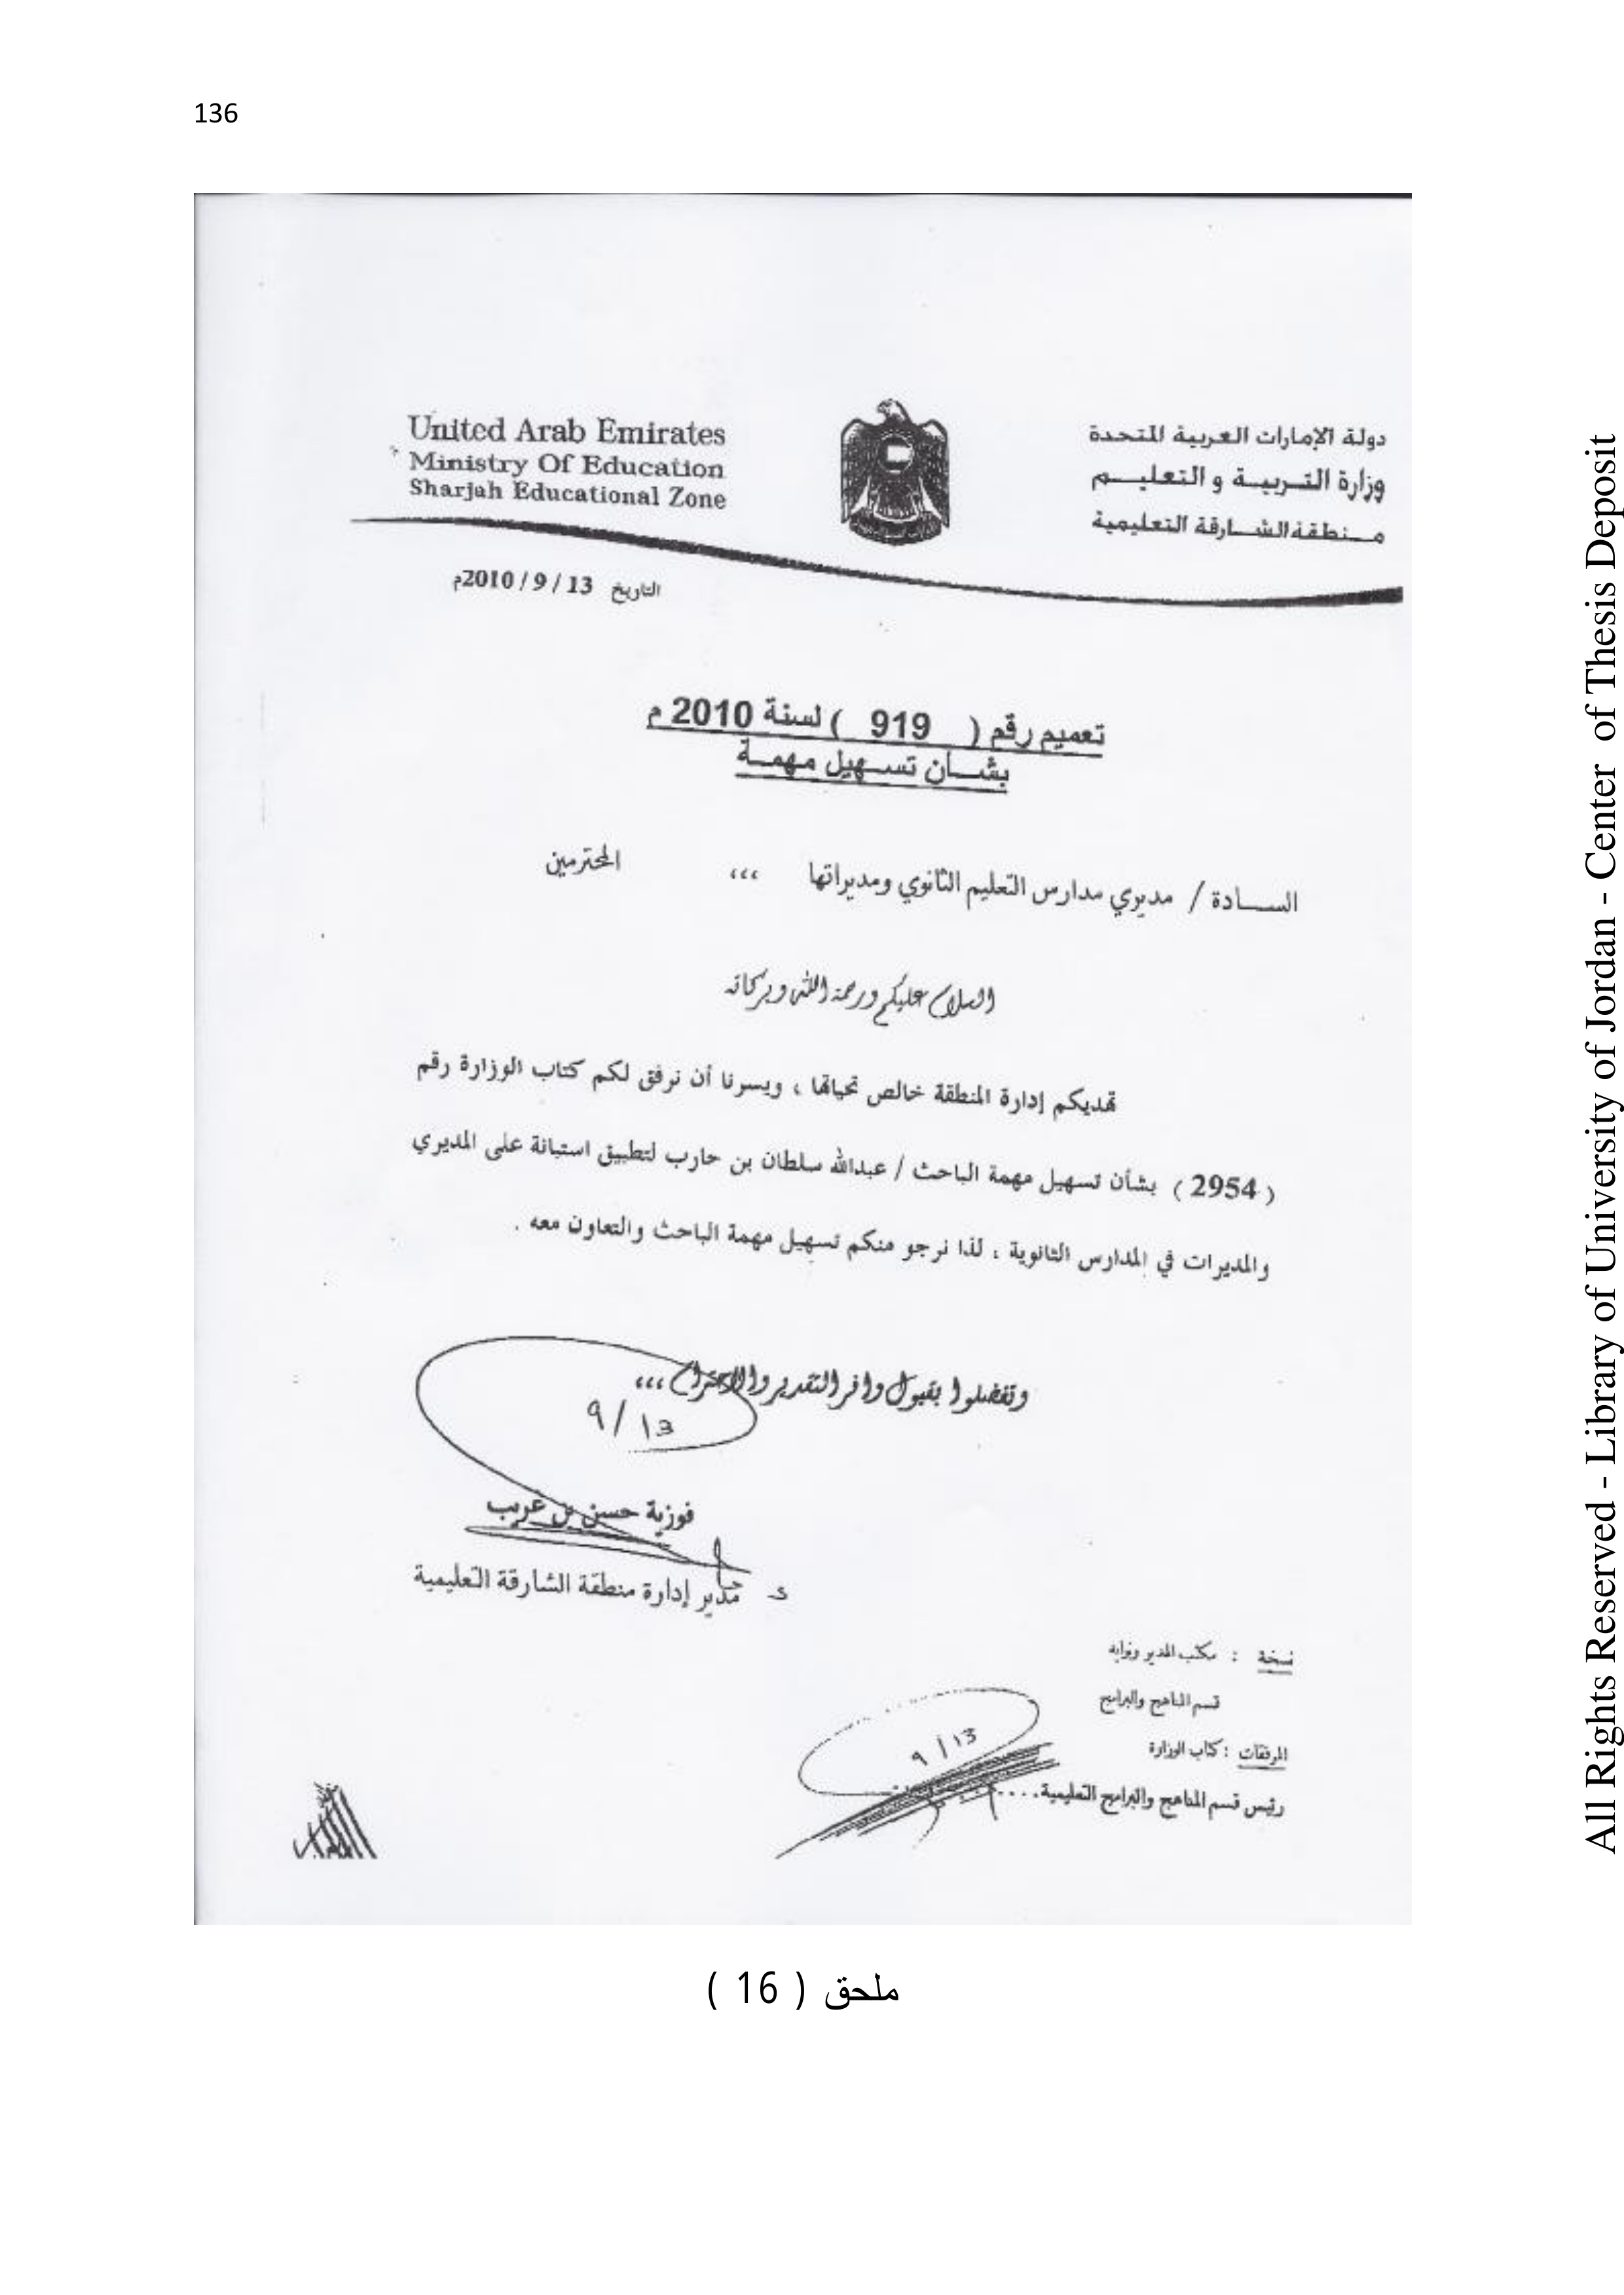 136
United Arab Emirates
Ministry Of Education
Sharjah Educational Zone
دولة الإمارات العربية المتحدة
وزارة التربية و التعليم
منطقة الشارقة التعليمية
التاريخ 13 / 9 / 2010م
تعميم رقم ( 919 ) لسنة 2010 م
بشأن تسهيل مهمة
السادة / مديري مدارس التعليم الثانوي ومديراتها ،،، المحترمين
السلام عليكم ورحمة الله وبركاته
تهديكم إدارة المنطقة خالص تحياتها ، ويسرنا أن نرفق لكم كتاب الوزارة رقم
( 2954 ) بشأن تسهيل مهمة الباحث / عبدالله سلطان بن حارب لتطبيق استبانة على المديري
والمديرات في المدارس الثانوية ، لذا نرجو منكم تسهيل مهمة الباحث والتعاون معه .
وتفضلوا بقبول وافر التقدير والاحترام ،،،
9/13
فوزية حسن بن غريب
مدير إدارة منطقة الشارقة التعليمية
نسخة : مكتب المدير ونوابه
قسم المناهج والبرامج
المرفقات : كتاب الوزارة
9/13
رئيس قسم المناهج والبرامج التعليمية....
ملحق ( 16 )
All Rights Reserved - Library of University of Jordan - Center of Thesis Deposit